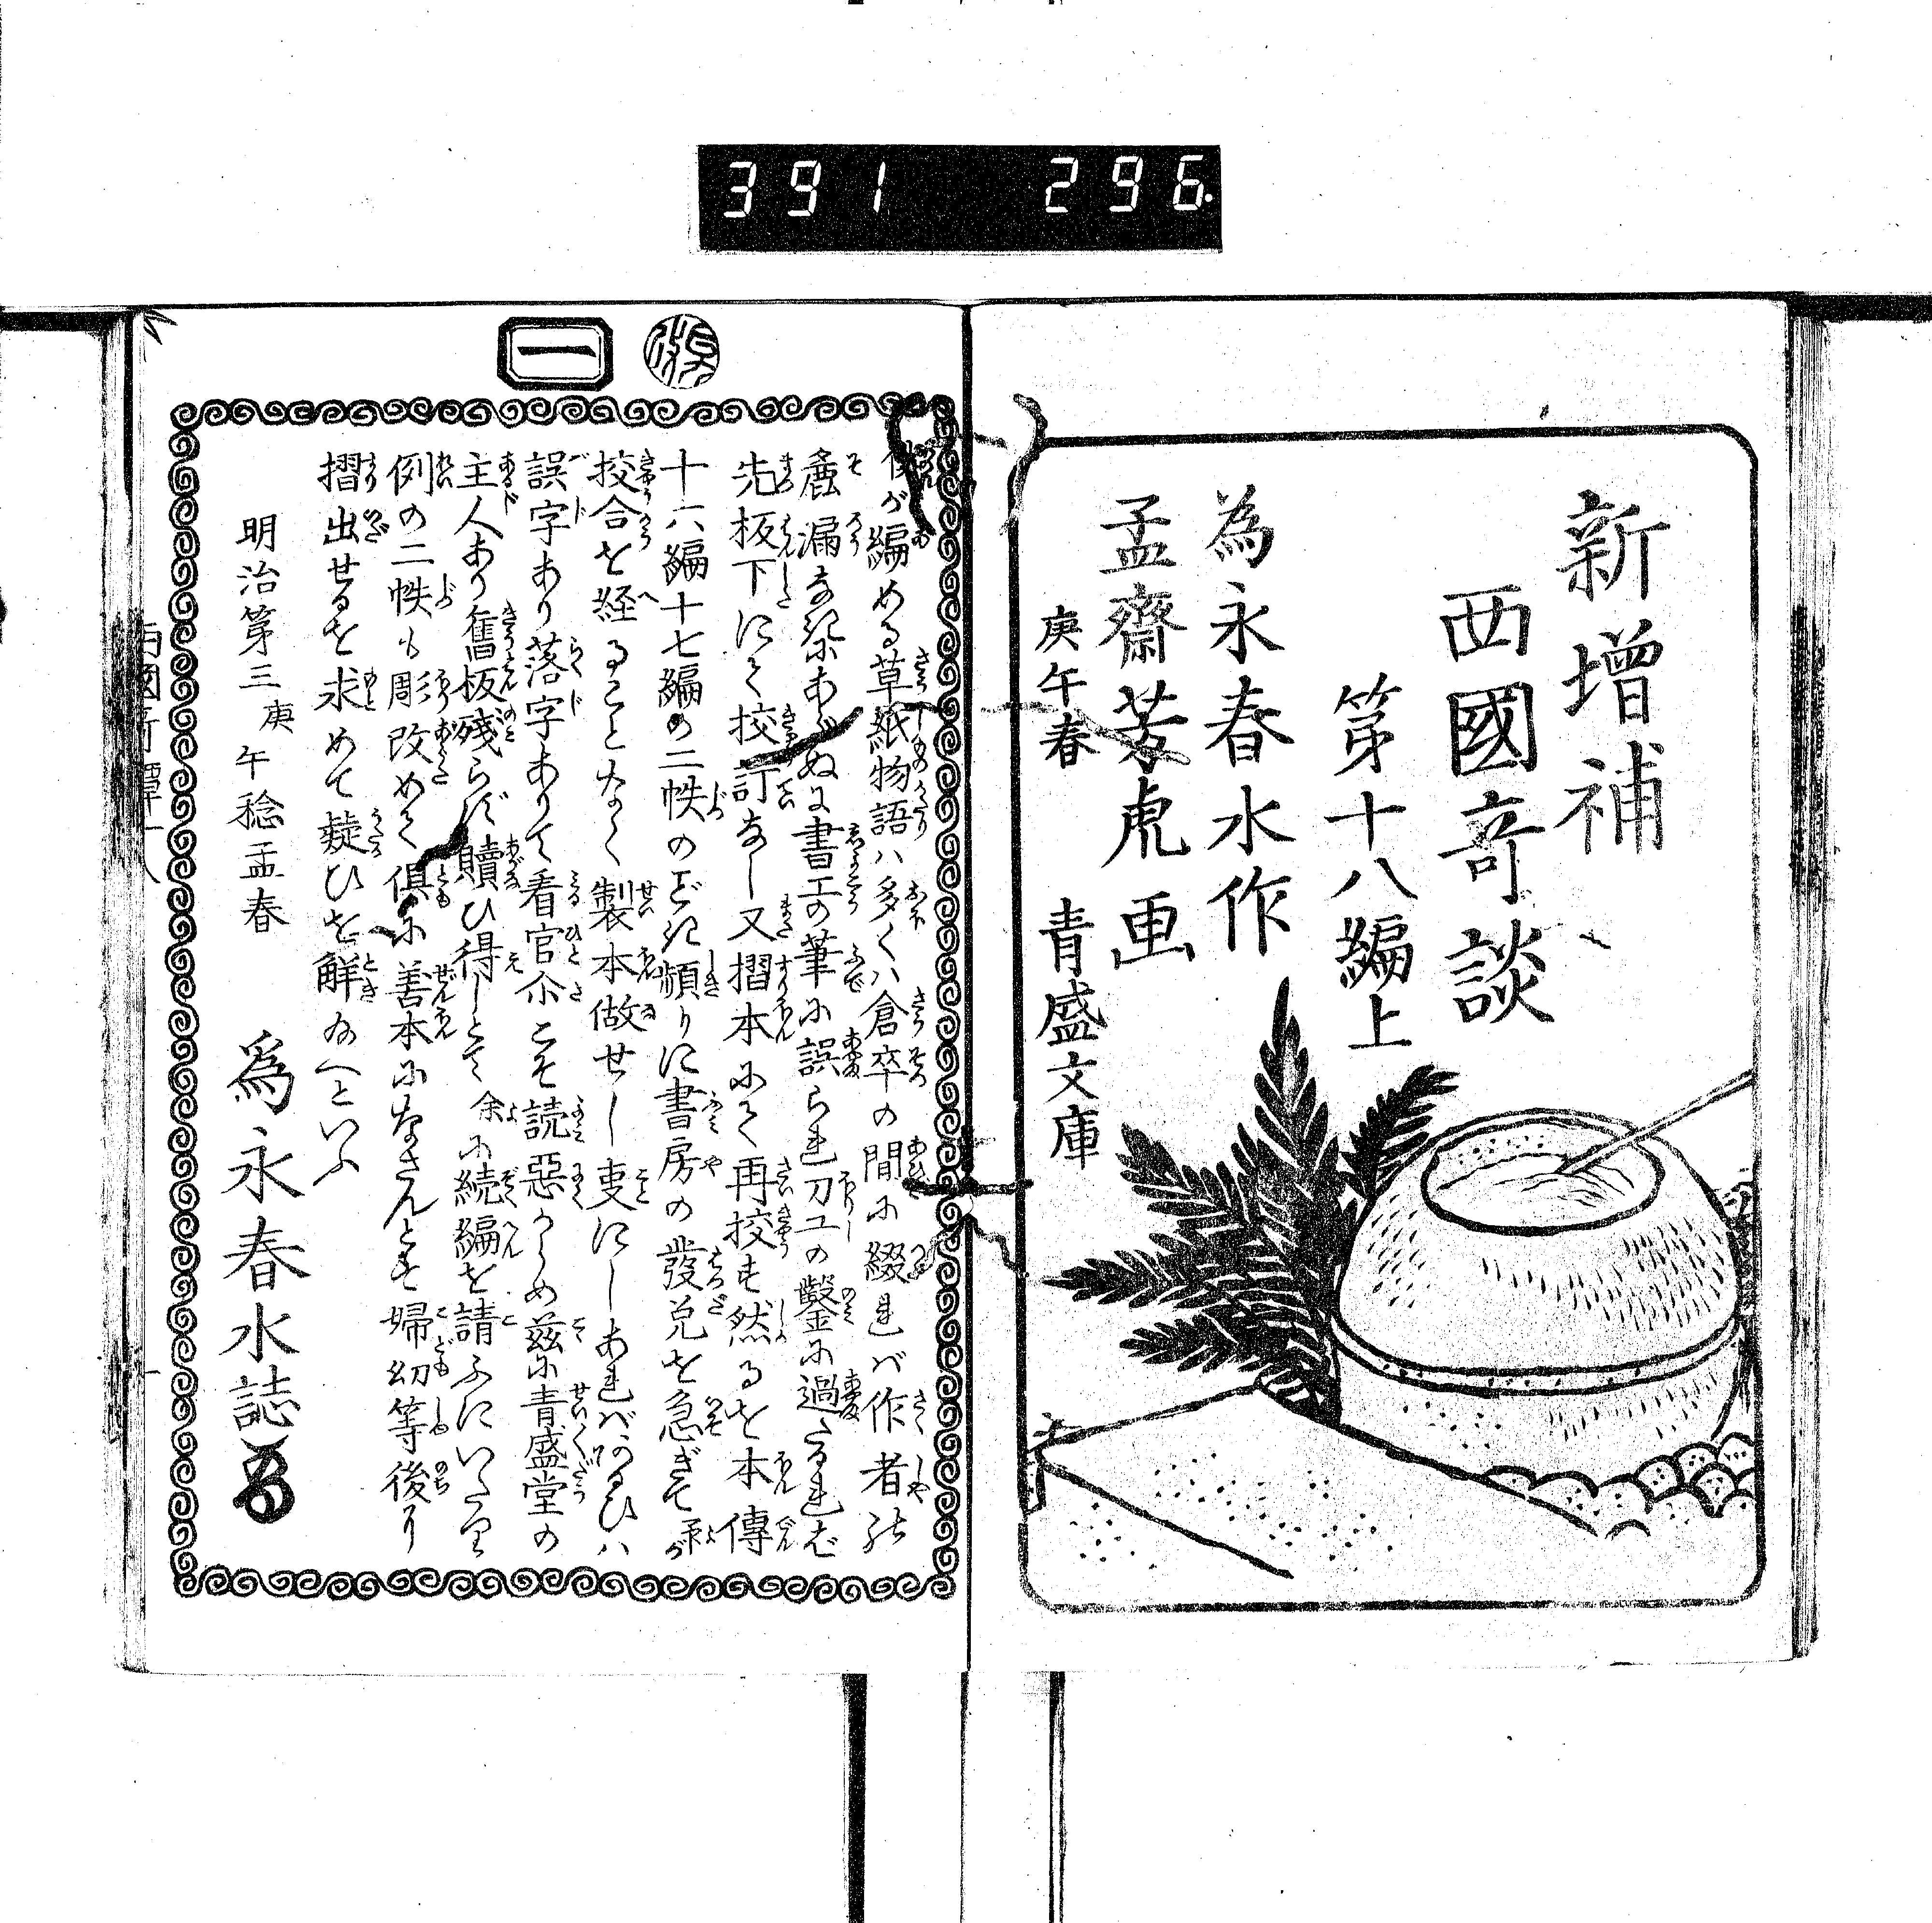 391 296.
新增補
西國奇談
第十八編上
為永春水作
孟齋芳虎画
庚午春 青盛文庫
一
が編める草紙物語ハ多くハ倉卒の間に綴れバ作者の
麁漏なきにあらぬに書工の筆に誤られ刀工の鑿に過たるれば
先板下にて挍訂なし又摺本にて再挍す然るを本傳
十六編十七編の二帙のごときハ頻りに書房の發兌を急ぎて予が
挍合を経ることなく製本做せし叓にしあれバあるひハ
誤字あり落字ありて看官尒こそ読惡からめ茲に青盛堂の
主人あり舊板殘らず贖ひ得しとて余に続編を請ふにいたり
例の二帙も彫改めて俱に善本になさんとす婦幼等後に
摺出せるを求めて疑ひを解ねへといふ
明治第三庚午稔孟春 為永春水誌